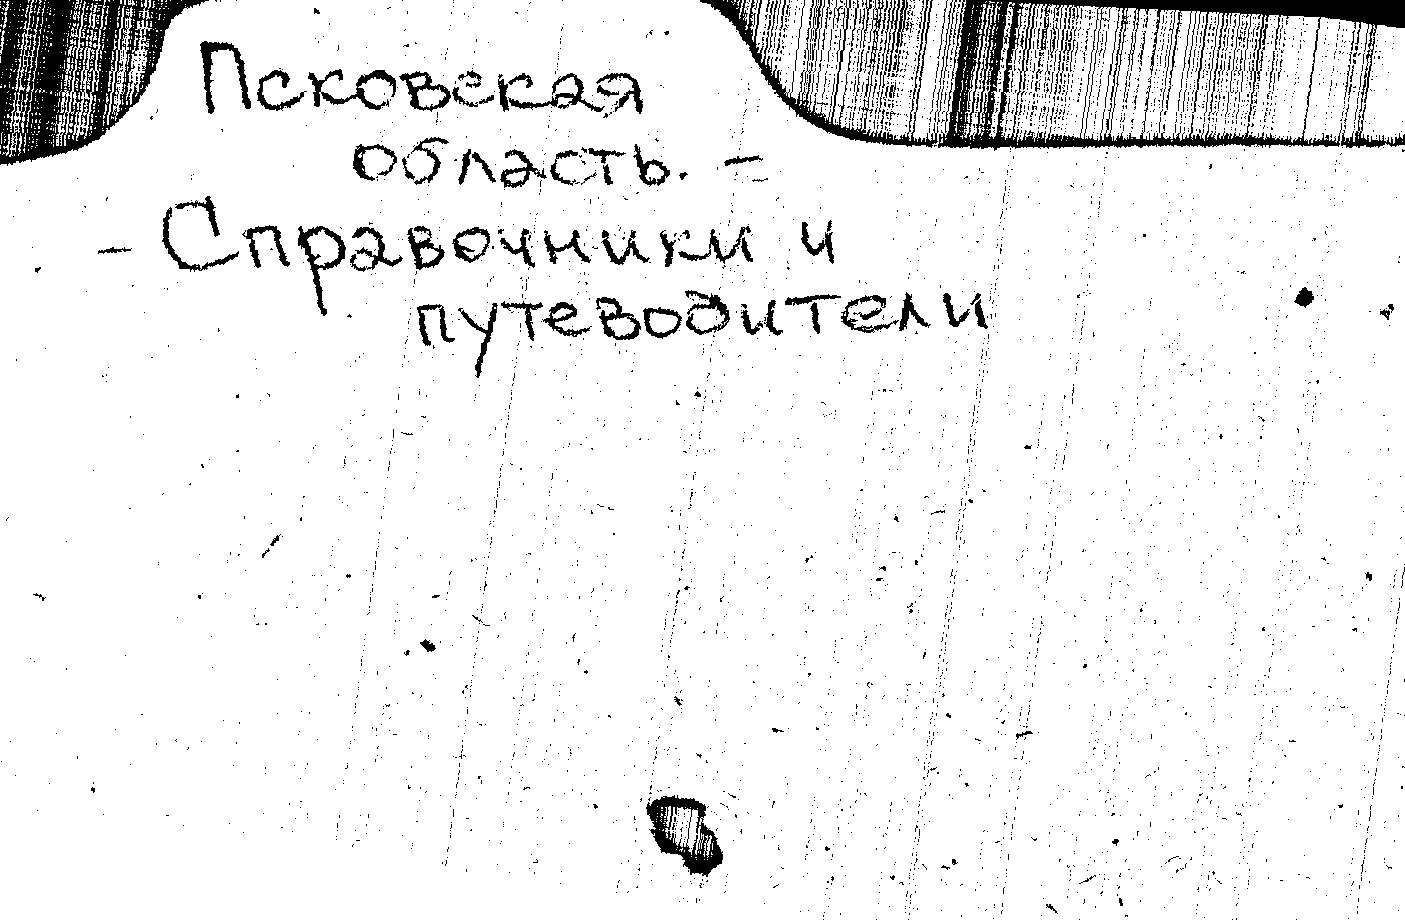 Псковская
область. -
- Справочники и
путеводители